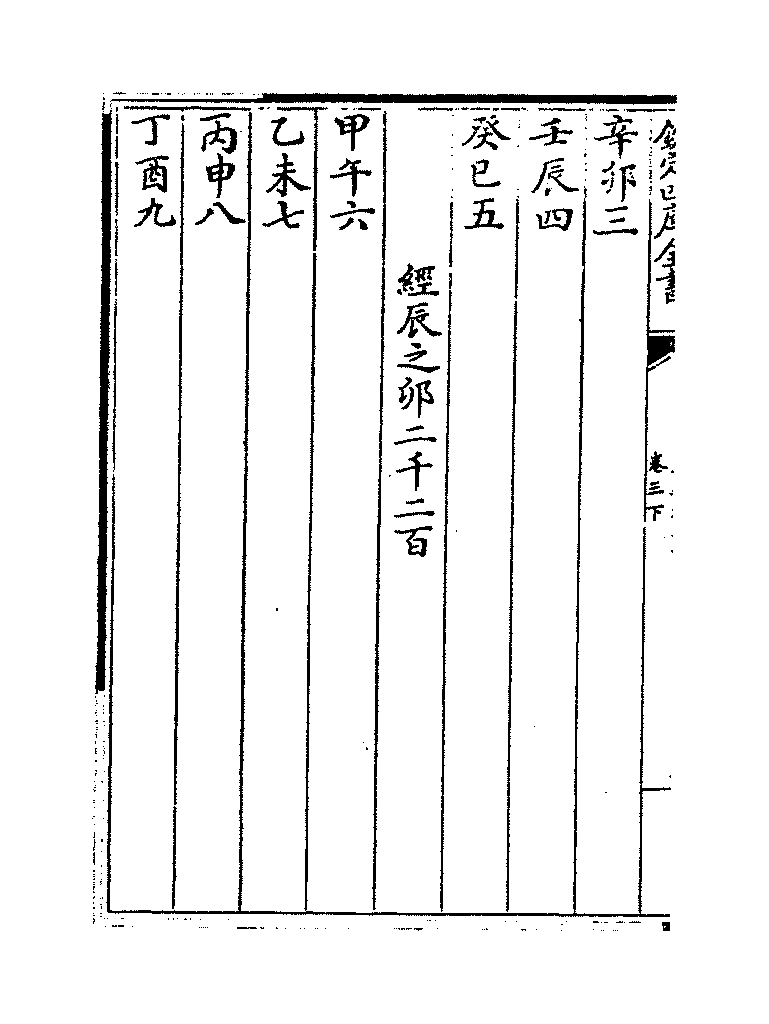 欽定四庫全書
卷三下
辛卯三
壬辰四
癸巳五
經辰之卯二千二百
甲午六
乙未七
丙申八
丁酉九